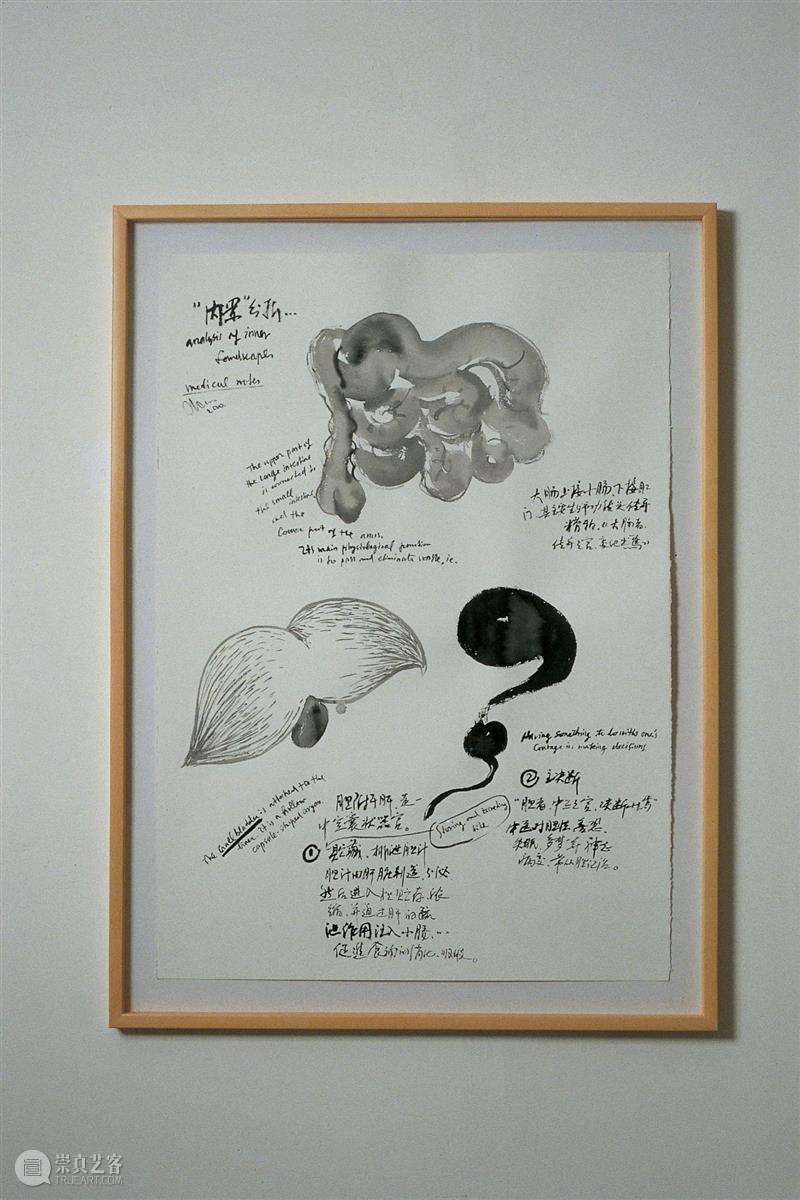 "内景"分析...
analysis of inner
landscapes
medical notes
The upper part of
the large intestine
is connected to
the small intestine
and the
Lower part of the anus.
Its main physiological function
is to pass and eliminate waste, ie.
大肠上接小肠,下接肛
门,其主要生理功能为传导
糟粕,"大肠者,
传导之官,变化出焉"
The Gallbladder is attached to the
liver. It is a hollow
capsule-shaped organ.
胆附于肝,是一
中空囊状器官。
① 贮藏、排泄胆汁
胆汁由肝脏制造、分泌
然后进入胆贮存、浓
缩,并通过肝的疏
泄作用注入小肠,...
促进食物的消化、吸收。
Storing and excreting
bile
Having something to do with one's
Courage in making decisions
② 主决断
"胆者,中正之官,决断出焉"
中医对胆怯、善恐、
失眠、多梦等神志
病变,常从胆论治。
崇真艺客
TRUEART.COM